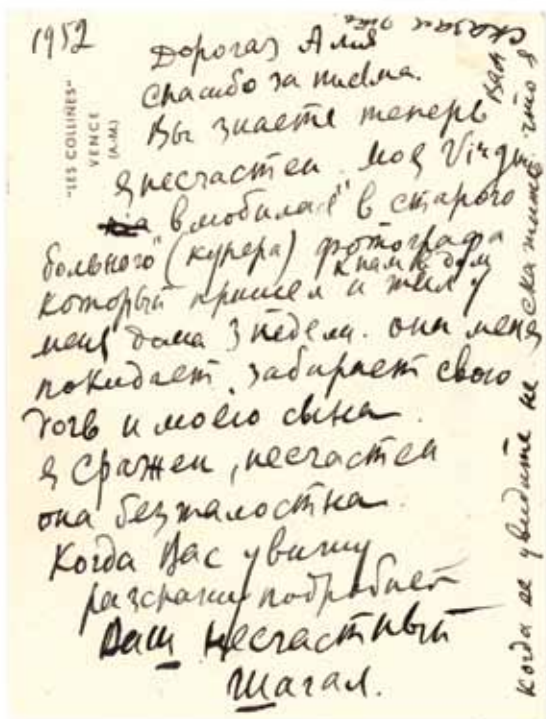 1952
"LES COLLINES"
VENCE
(A.M.)
Дорогая Алия
спасибо за письма.
Вы знаете теперь
я несчастен. моя Virgin
ia влюбилась в старого
больного" (купера) фотографа
к нам в дом
который пришел и жил у
меня дома 3 недели. она меня
покидает, забирает свою
дочь и моего сына.
я сражен, несчастен
она безжалостна.
Когда Вас увижу
расскажу подробнее
Ваш несчастный
Шагал.
когда ее увидите не скажите что я
Вам
сказал это.